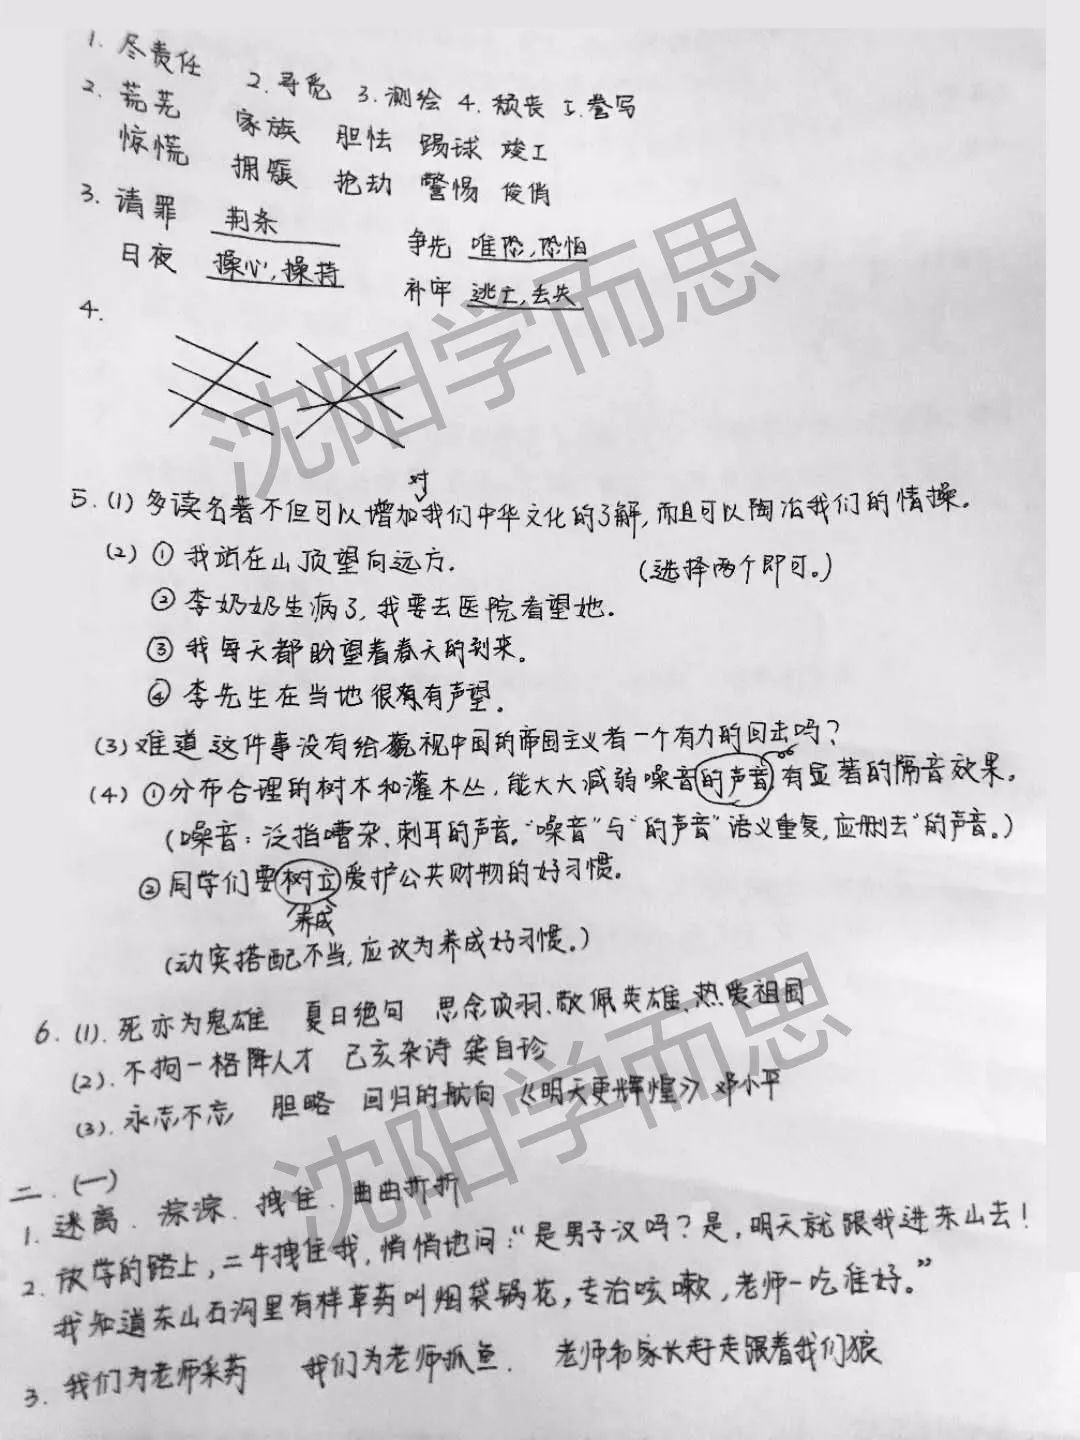 1. 尽责任 2. 寻觅 3. 测绘 4. 颓丧 5. 誊写
2. 荒芜 家族 胆怯 踢球 竣工
惊慌 拥簇 抢劫 警惕 俊俏
3. 请罪 荆条 争先 唯恐,恐怕
日夜 操心,操持 补牢 逃亡,丢失
4.
对
5. (1) 多读名著不但可以增加我们中华文化的了解,而且可以陶冶我们的情操。
(2) ① 我站在山顶望向远方. (选择两个即可。)
② 李奶奶生病了,我要去医院看望她.
③ 我每天都盼望着春天的到来。
④ 李先生在当地很有声望.
(3) 难道这件事没有给藐视中国的帝国主义者一个有力的回击吗?
(4) ①分布合理的树木和灌木丛,能大大减弱噪音的声音,有显著的隔音效果。
(噪音:泛指嘈杂、刺耳的声音。“噪音”与“的声音”语义重复,应删去“的声音。)
② 同学们要树立爱护公共财物的好习惯。
养成
(动宾搭配不当,应改为养成好习惯。)
6. (1). 死亦为鬼雄 夏日绝句 思念项羽、敬佩英雄、热爱祖国
(2). 不拘一格降人才 己亥杂诗 龚自珍
(3). 永志不忘 胆略 回归的航向 《明天更辉煌》 邓小平
二. (一)
1. 迷离. 淙淙. 拽住. 曲曲折折
2. 放学的路上,二牛拽住我,悄悄地问:“是男子汉吗?是,明天就跟我进东山去!
我知道东山石沟里有样草药叫烟袋锅花,专治咳嗽,老师一吃准好。”
3. 我们为老师采药 我们为老师抓鱼. 老师和家长赶走跟着我们狼
沈阳学而思
沈阳学而思